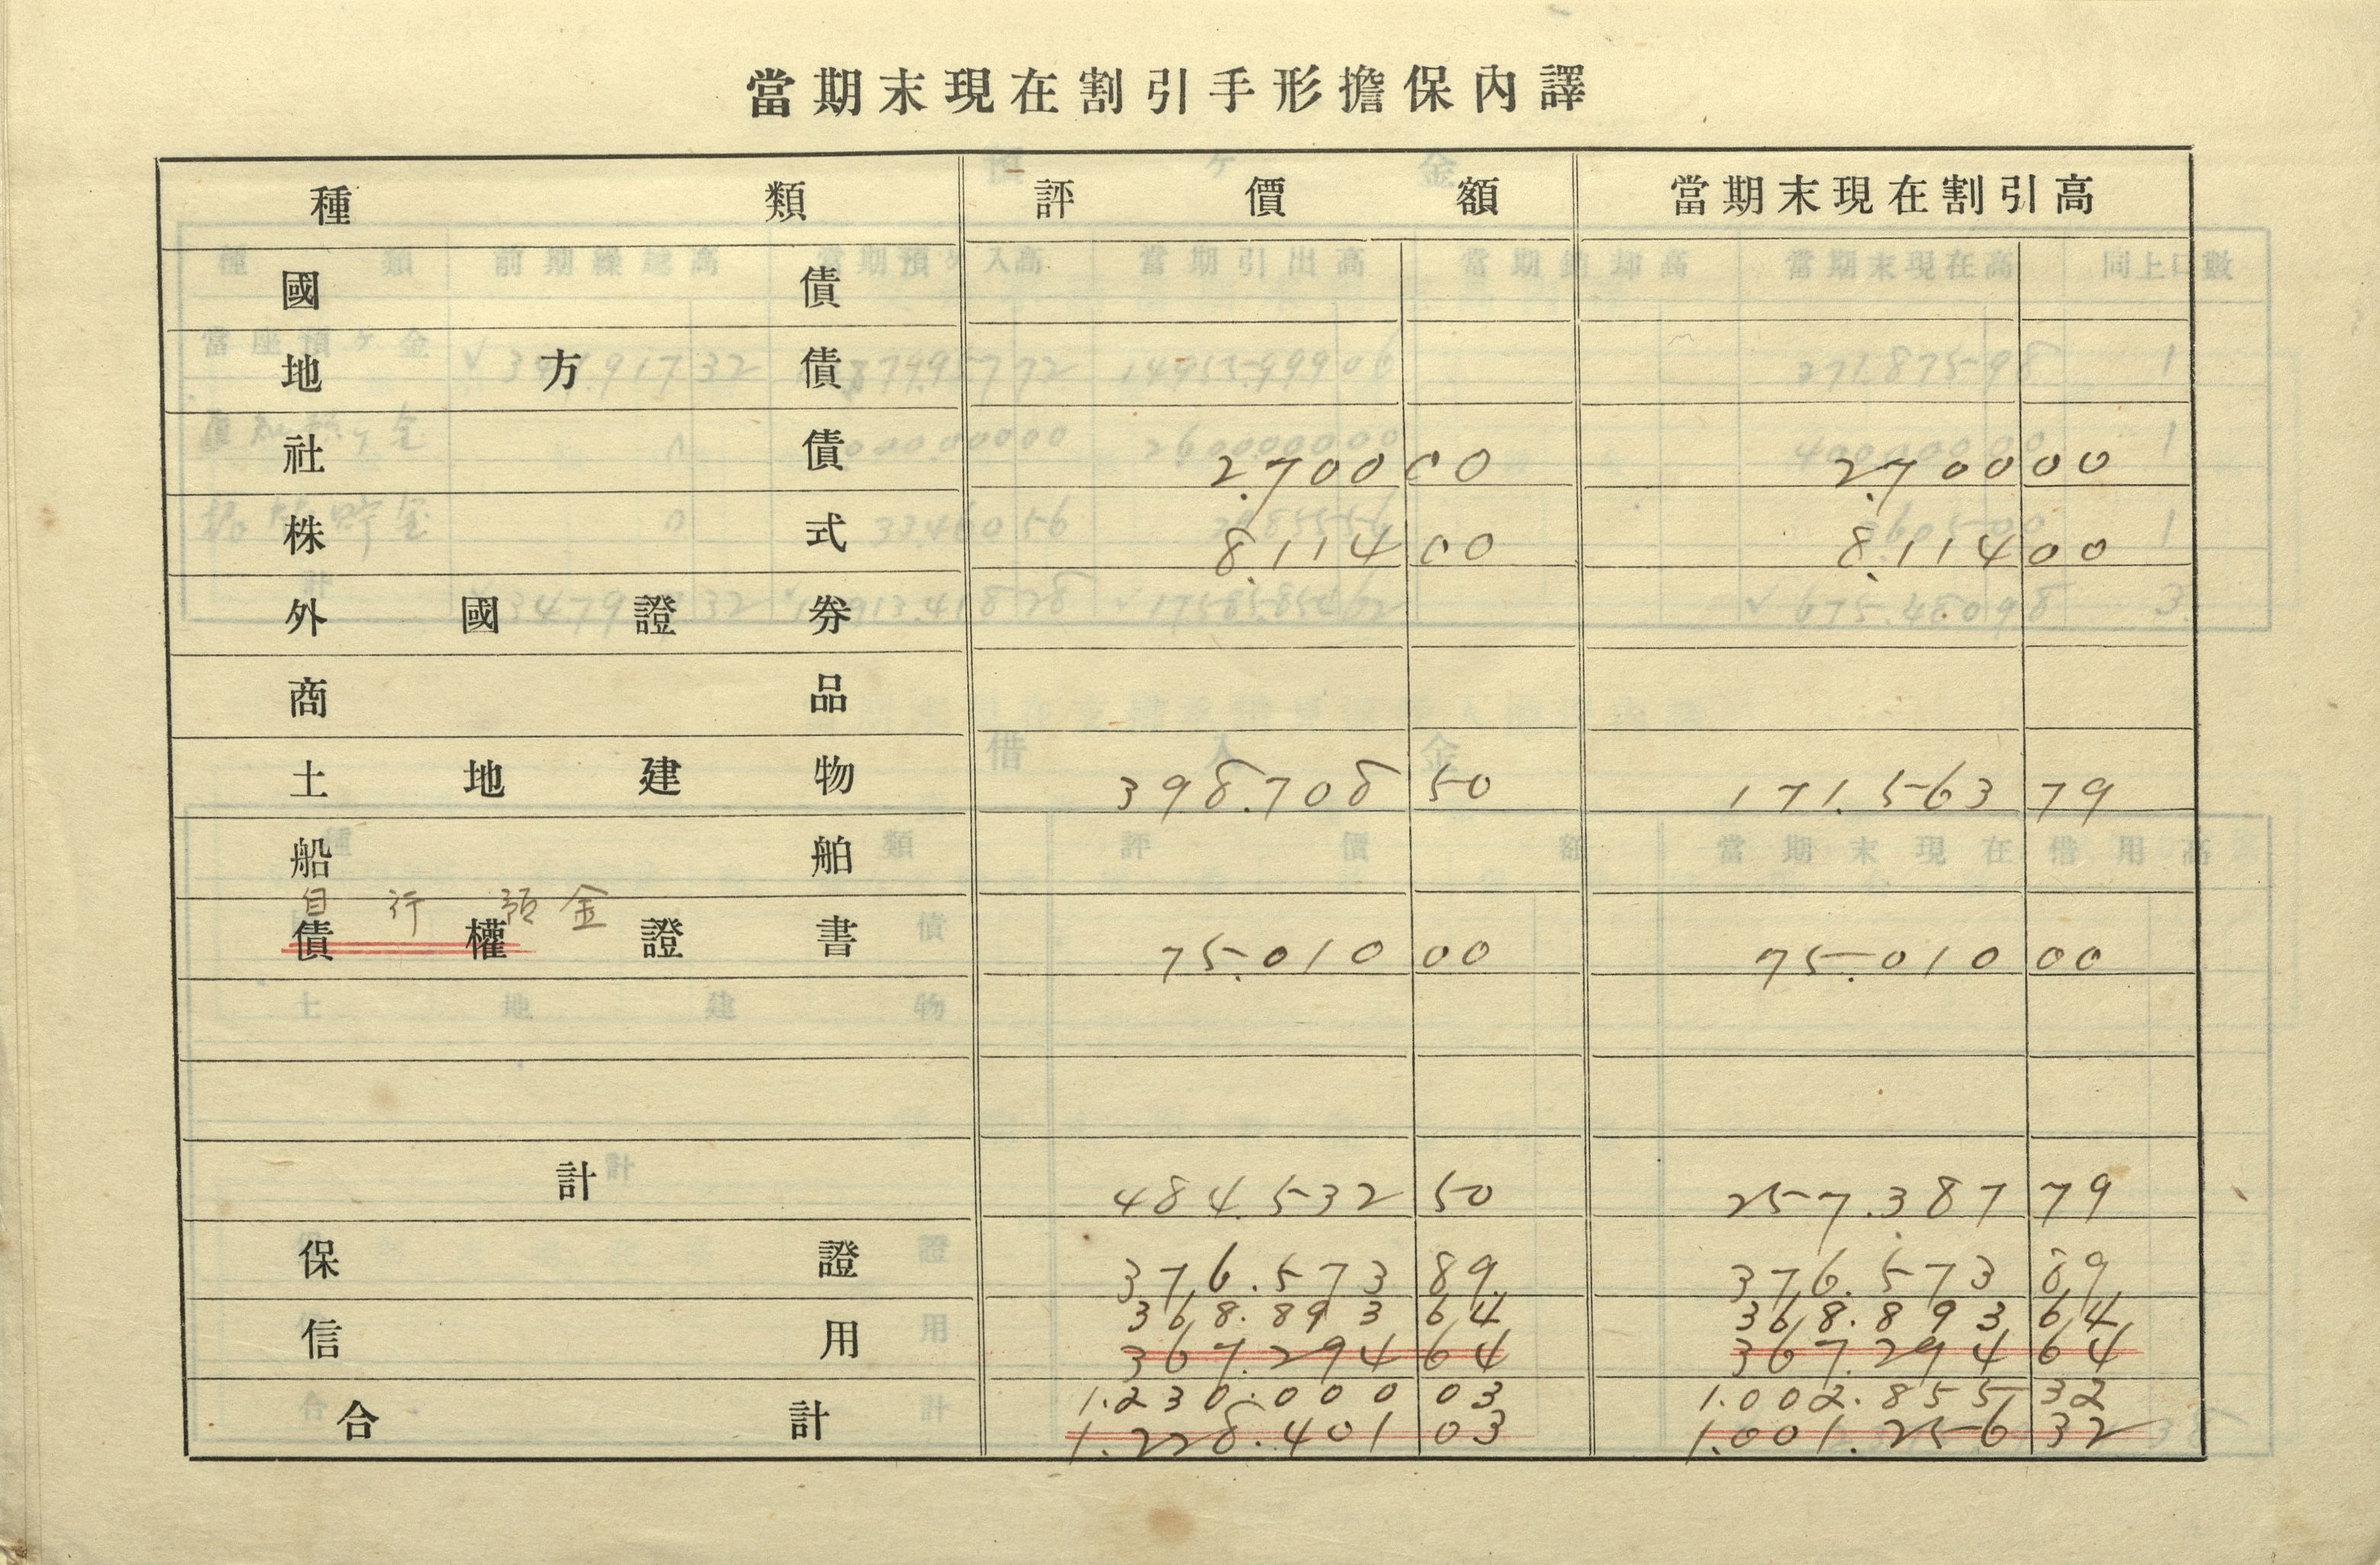 當期末現在割引手形擔保內譯
種類 評價額 當期末現在割引高
國債
地方債
社債 2.700 00 2.700 00
株式 8.114 00 8.114 00
外國證券
商品
土地建物 398.708 50 171.563 79
船舶
自行預金
債權證書 75.010 00 75.010 00
計 484.532 50 257.387 79
保證 376.573 89 376.573 89
368.893 64 368.893 64
信用 367.294 64 367.294 64
1.230.000 03 1.002.855 32
合計 1.228.401 03 1.001.256 32